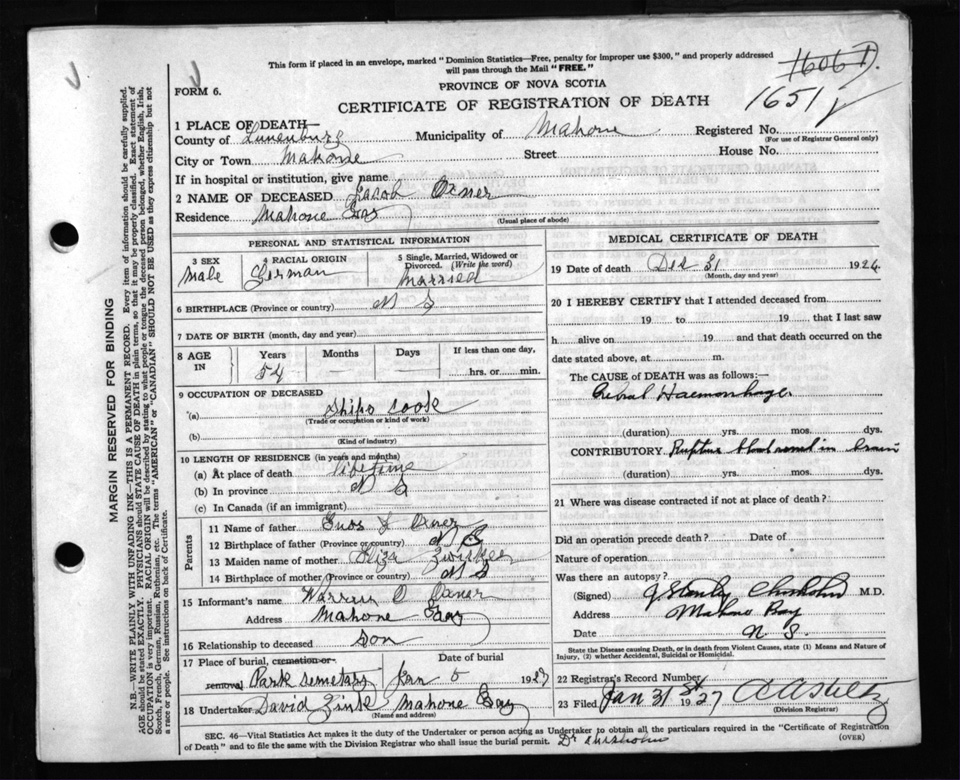 This form if placed in an envelope, marked "Dominion Statistics—Free, penalty for improper use $300," and properly addressed
will pass through the Mail "FREE."
1606
1651
FORM 6.
PROVINCE OF NOVA SCOTIA
CERTIFICATE OF REGISTRATION OF DEATH
1 PLACE OF DEATH—
County of Lunenburg Municipality of Mahone Registered No.
(For use of Registrar General only)
City or Town Mahone Street House No.
If in hospital or institution, give name
2 NAME OF DECEASED Jacob Oxner
Residence Mahone Bay
(Usual place of abode)
PERSONAL AND STATISTICAL INFORMATION
3 SEX 4 RACIAL ORIGIN 5 Single, Married, Widowed or
Divorced. (Write the word)
Male German Married
6 BIRTHPLACE (Province or country) N S
7 DATE OF BIRTH (month, day and year)
8 AGE IN Years Months Days If less than one day,
54 — — hrs. or min.
9 OCCUPATION OF DECEASED
(a) Ships cook
(Trade or occupation or kind of work)
(b)
(Kind of industry)
10 LENGTH OF RESIDENCE (in years and months)
(a) At place of death lifetime
(b) In province N S
(c) In Canada (if an immigrant)
Parents
11 Name of father Enos J Oxner
12 Birthplace of father (Province or country) N S
13 Maiden name of mother Eliza
14 Birthplace of mother (Province or country) N S
15 Informant's name Warren O Oxner
Address Mahone Bay
16 Relationship to deceased son
17 Place of burial, cremation or removal Date of burial
Park semetary Jan 1927
18 Undertaker David Zink Mahone Bay
(Name and address)
MEDICAL CERTIFICATE OF DEATH
19 Date of death Dec 31 1926
(Month, day and year)
20 I HEREBY CERTIFY that I attended deceased from
19 to 19 that I last saw
h alive on 19 and that death occurred on the
date stated above, at m.
The CAUSE of DEATH was as follows:—
Haemorrhage
(duration) yrs. mos. dys.
CONTRIBUTORY Rupture blood vessel in brain
(duration) yrs. mos. dys.
21 Where was disease contracted if not at place of death?
Did an operation precede death? Date of
Nature of operation
Was there an autopsy?
(Signed) J Stanley Chisholm M.D.
Address Mahone Bay
Date N S.
State the Disease causing Death, or in death from Violent Causes, state (1) Means and Nature of
Injury, (2) whether Accidental, Suicidal or Homicidal.
22 Registrar's Record Number
23 Filed Jan 31st 1927
(Division Registrar)
SEC. 46—Vital Statistics Act makes it the duty of the Undertaker or person acting as Undertaker to obtain all the particulars required in the "Certificate of Registration
of Death" and to file the same with the Division Registrar who shall issue the burial permit. Dr Chisholm (OVER)
MARGIN RESERVED FOR BINDING
N.B.—WRITE PLAINLY WITH UNFADING INK—THIS IS A PERMANENT RECORD. Every item of information should be carefully supplied.
AGE should be stated EXACTLY. PHYSICIANS should STATE CAUSE OF DEATH in plain terms, so that it may be properly classified. Exact statement of
OCCUPATION is very important. RACIAL ORIGIN will be described by stating to what people or tongue the deceased person belonged, whether English, Irish,
Scotch, French, German, Russian, Ruthenian, etc. The terms "AMERICAN" or "CANADIAN" SHOULD NOT BE USED as they express citizenship but not
a race or people. See instructions on back of Certificate.